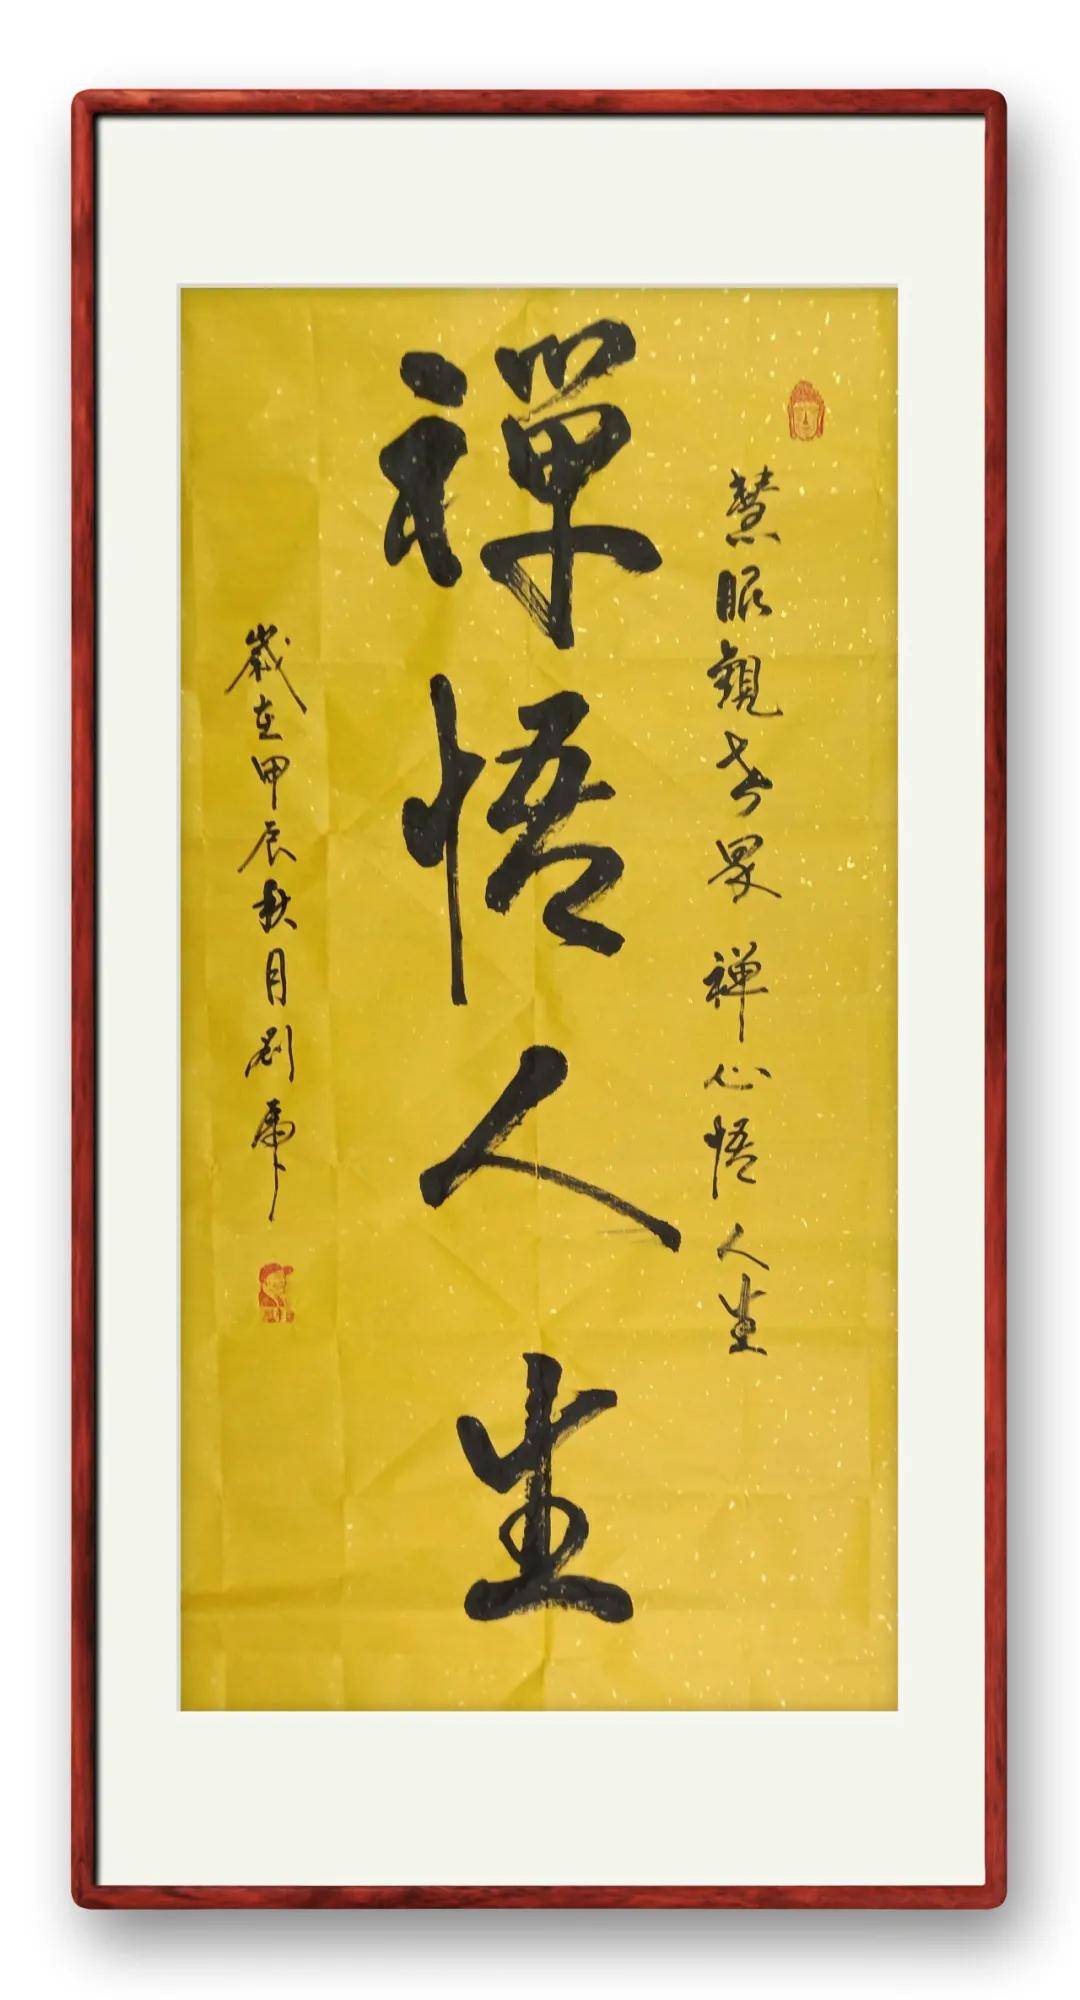 慧眼觀世界 禅心悟人生
禅悟人生
歲在甲辰秋月劉